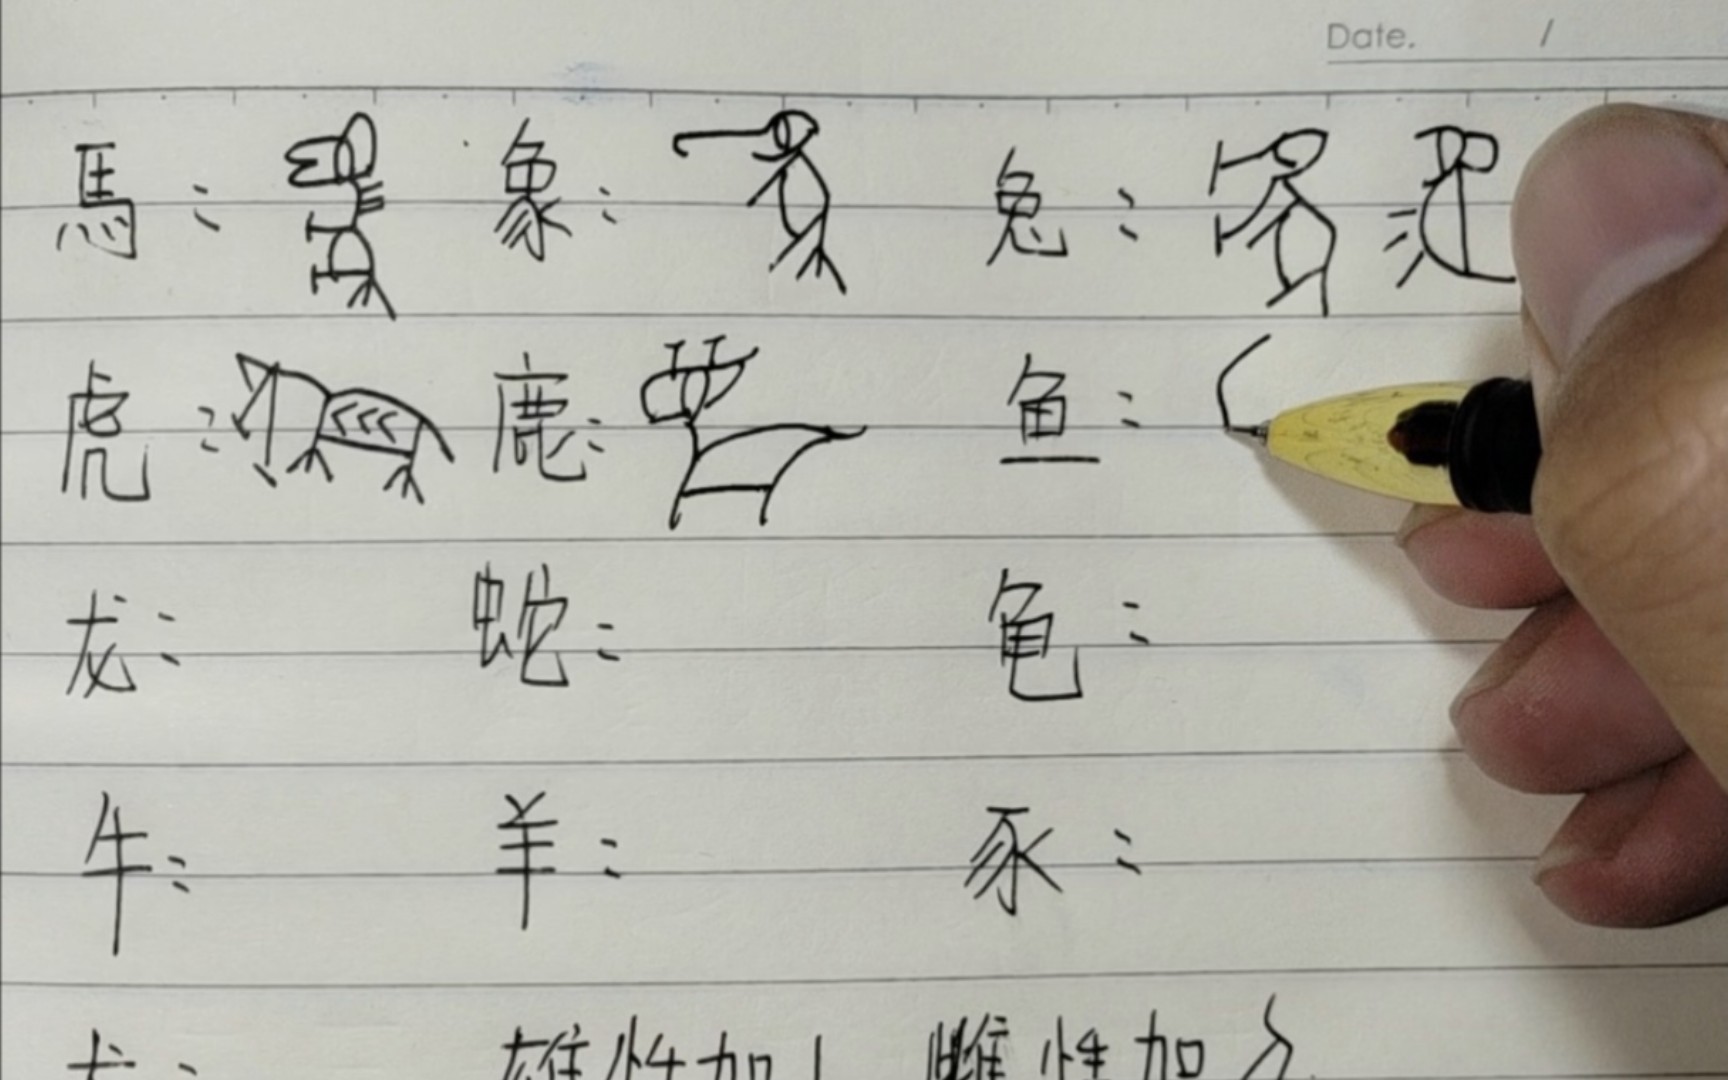 Date. /
馬: 象: 兔:
虎: 鹿: 鱼:
龙: 蛇: 龟:
牛: 羊: 豕:
雄性加 雌性加